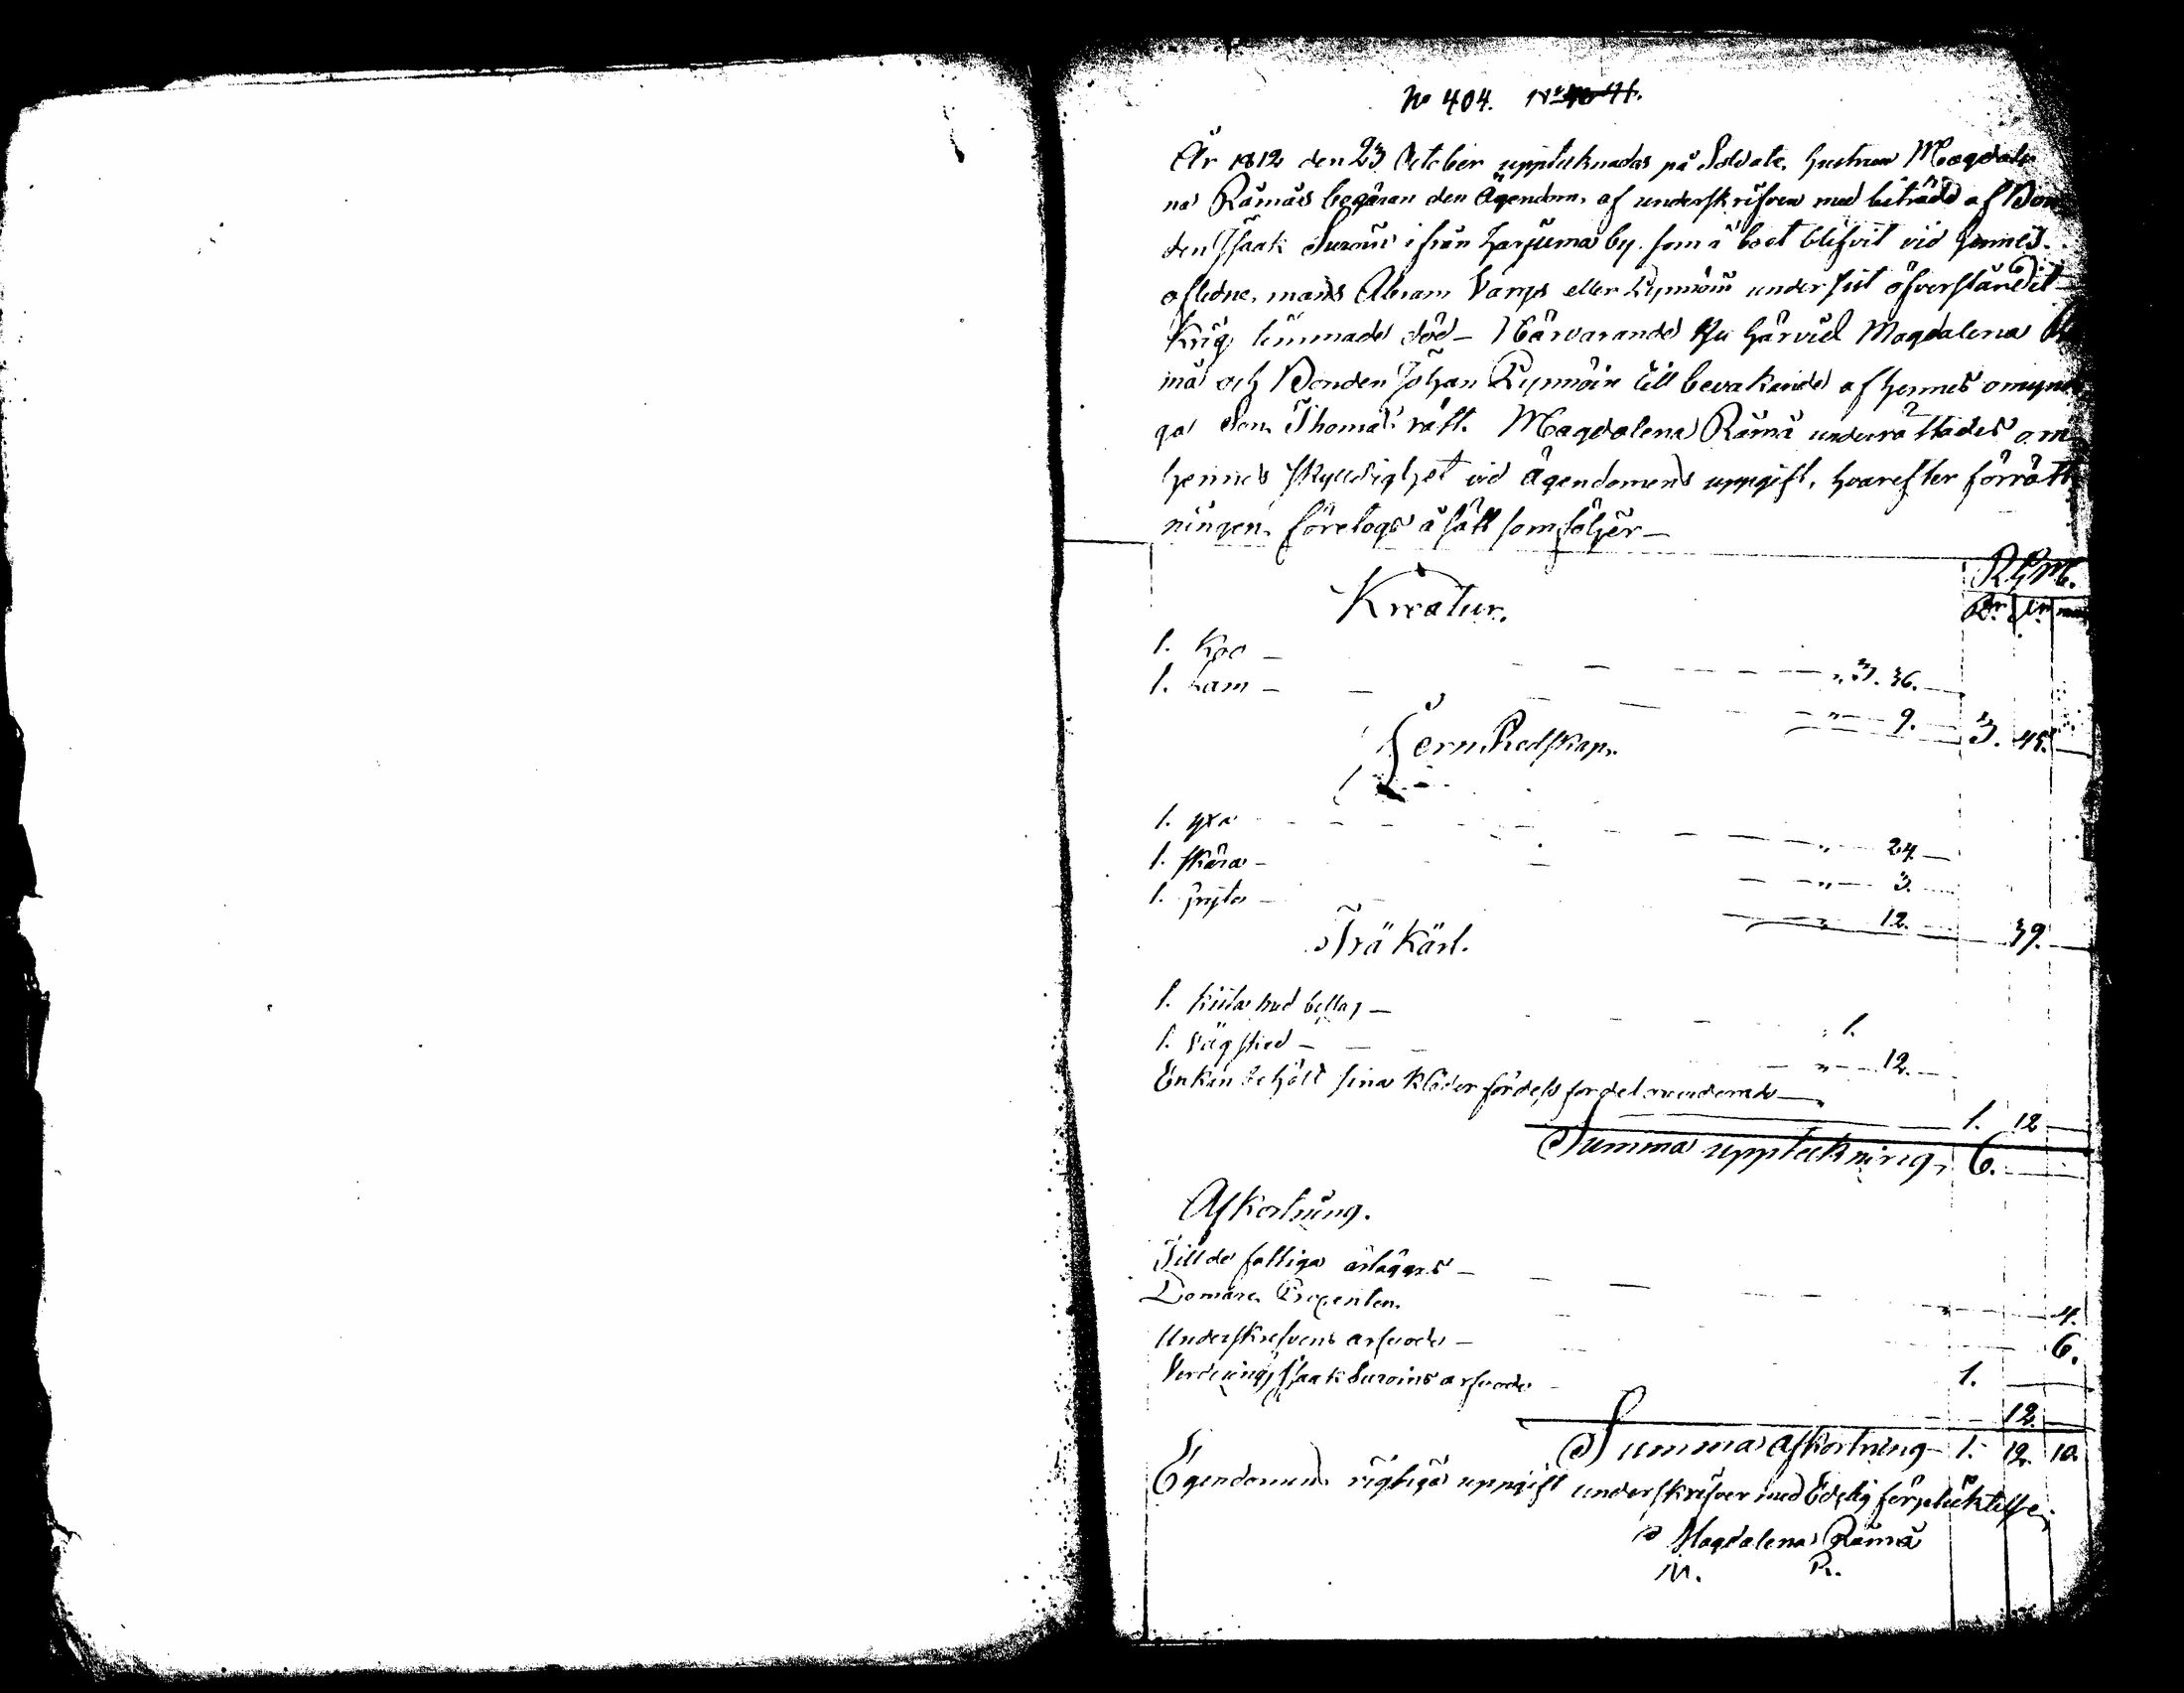 No 404.
År 1812 den 23 October upptecknades på Soldate. hustrun Magdale
na Rämäs begäran den Ägendom, af underskrifven med biträde af Bon
den Isaak Suroin ifrån Harjuma by. som i boet blifvit vid hennes
afledne. mans Abram Vargs eller Pynnöin under sist öfverståndet
Krig timmade död – Närvarande Magdalena Rä
mä och Bonden Johan Pynnöin till bevakande af hennes omyn
ga Son Thomas rätt. Magdalena Rämä underrättades om
hennes skylldighet vid ägendomens uppgift, hvarefter förrätt
ningen företogs å sätt som följer –
Kreatur.
1. Koo – 3. 36.
1. Lam – 9. 3. 45.
Jern Redskap.
1. yxa 24
1. skära – 3.
1. gryta – 12. 39.
Trä Kärl.
1. 1.
1. 12.
Enkan behölt sina Kläder 1. 12
Summa uppteckning, 6.
Afkortning.
Till de fattiga ärlägges – 4.
Domare Procenten. 6.
Underskrefvens arfvode – 1.
Isaak Suroins arfvode 12.
Summa afkortning 1. 12. 10.
Egendomens rigtiga uppgift underskrifver med Edelig förplicktelse.
Magdalena Rämä
M. R.